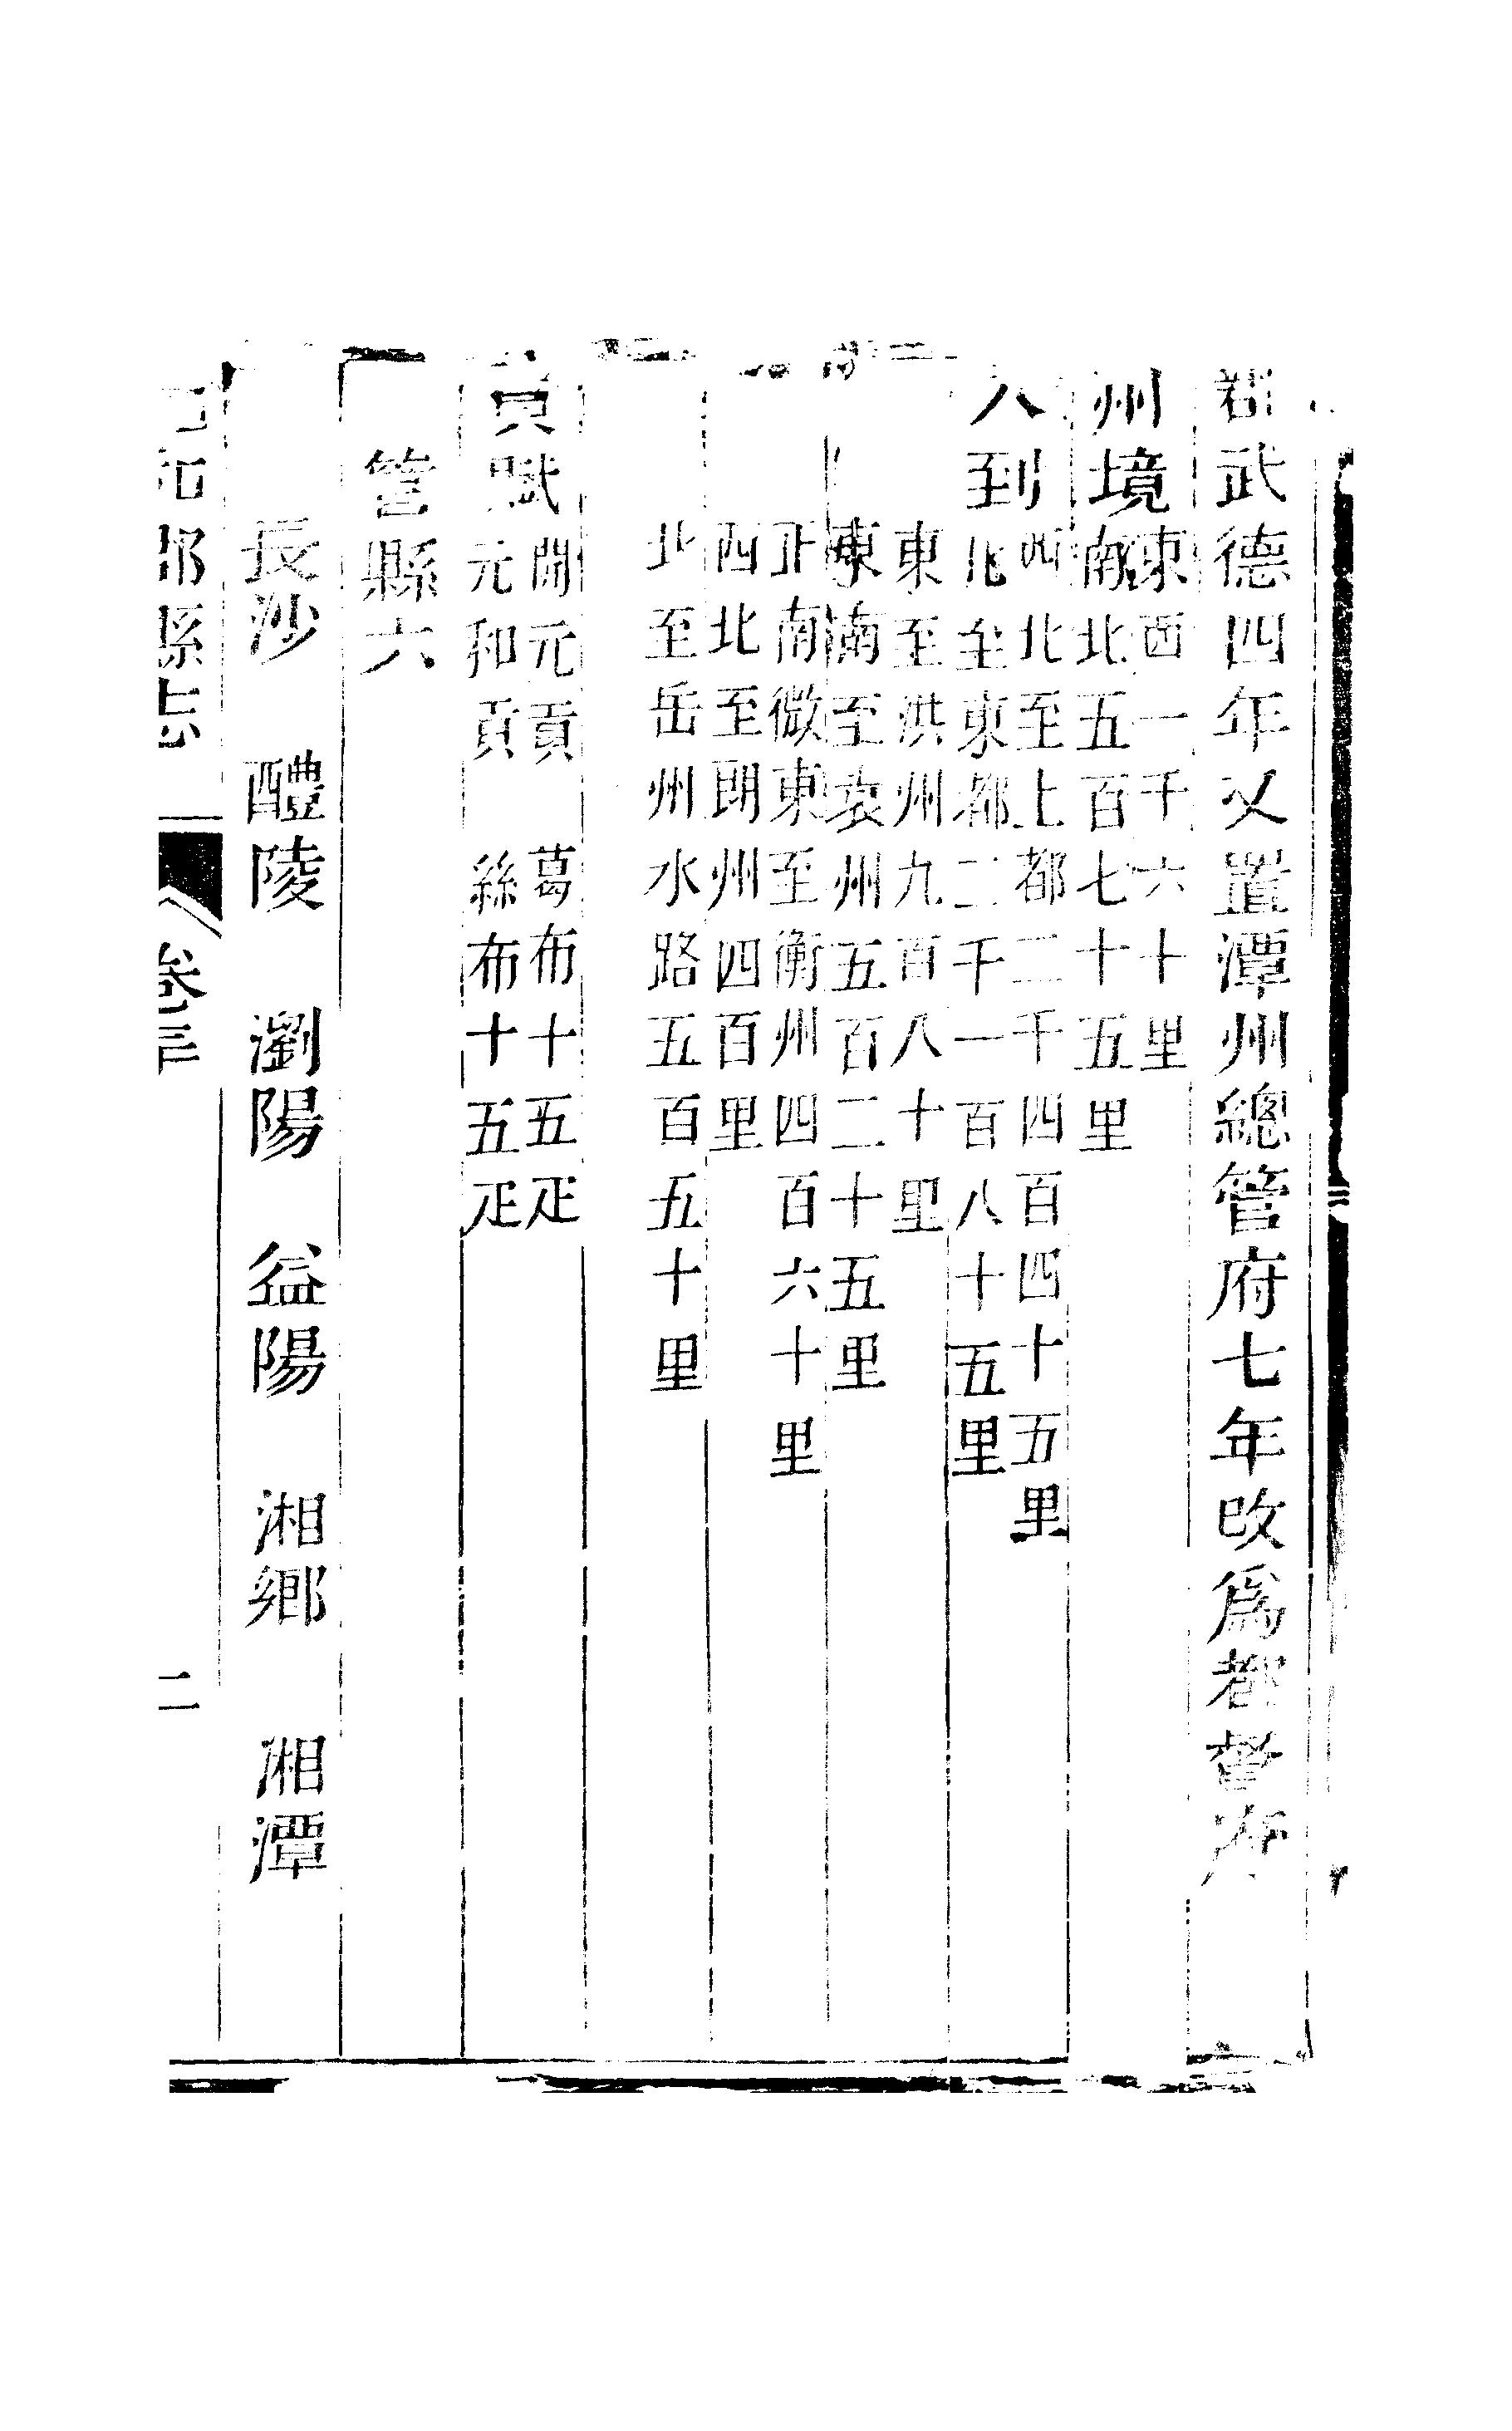 郡武德四年又置潭州總管府七年改爲都督府
州境東西一千六十里
南北五百七十五里
八到西北至上都二千四百四十五里
北至東都二千一百八十五里
東至洪州九百八十里
東南至袁州五百二十五里
正南微東至衡州四百六十里
西北至朗州四百里
北至岳州水路五百五十里
貢賦開元貢　葛布十五疋
元和貢　絲布十五疋
管縣六
長沙　醴陵　瀏陽　益陽　湘鄉　湘潭
元和郡縣志　卷三　二